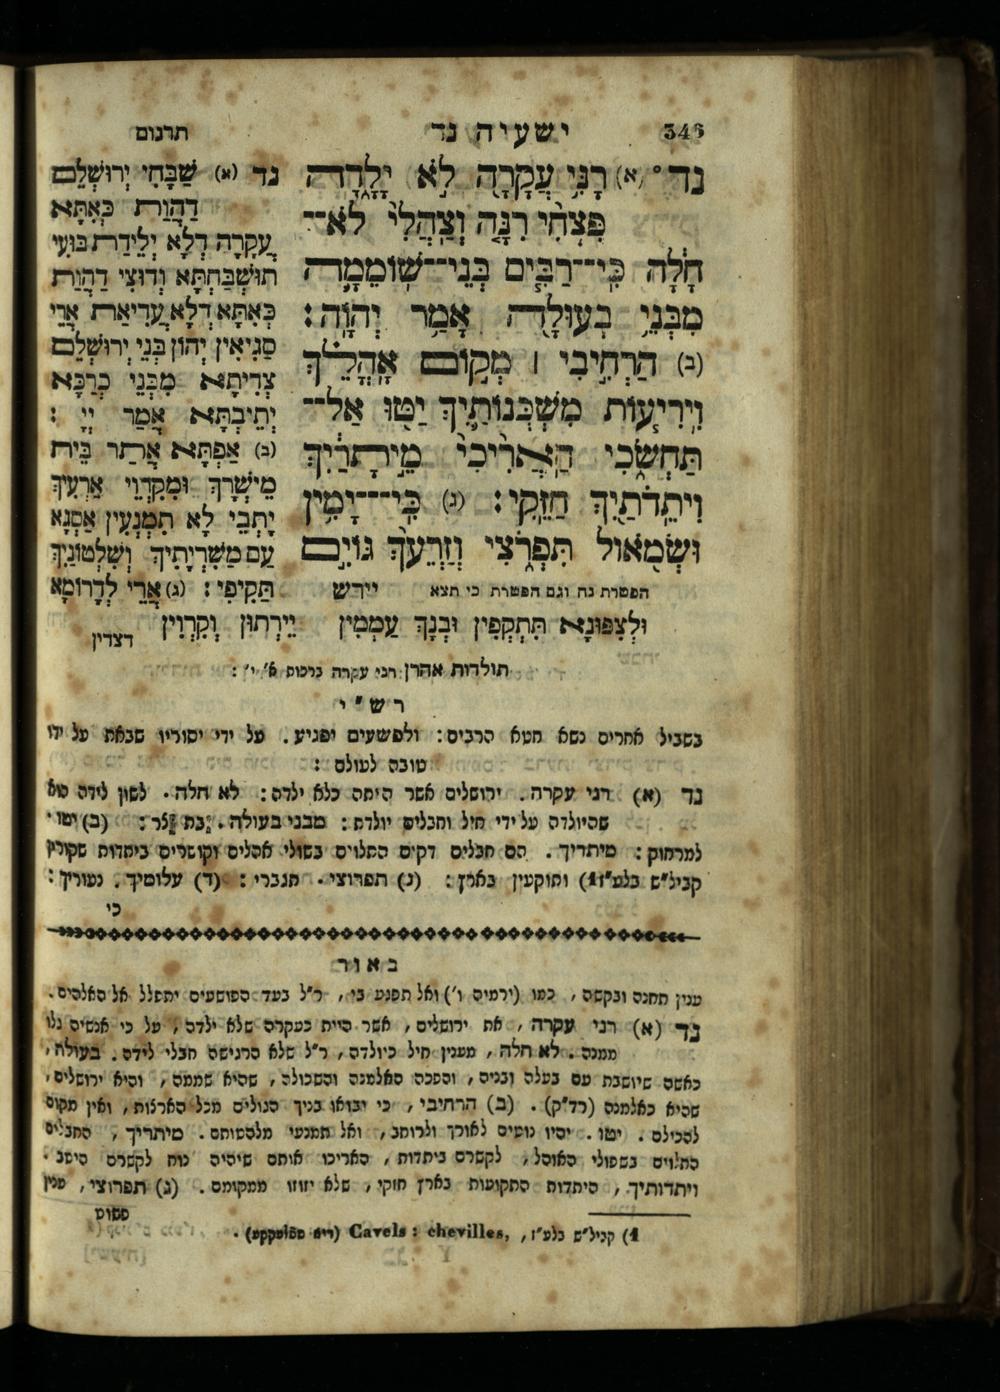 346 ישעיה נד תרגום
נד° (א) רָנִּי עֲקָרָה לֹא יָלָדָה
פִּצְחִי רִנָּה וְצַהֲלִי לֹא־
חָלָה כִּי־רַבִּים בְּנֵי־שׁוֹמֵמָה
מִבְּנֵי בְעוּלָה אָמַר יְהוָה :
(ב) הַרְחִיבִי ׀ מְקוֹם אָהֳלֵךְ
וִירִיעוֹת מִשְׁכְּנוֹתַיִךְ יַטּוּ אַל־
תַּחְשֹׂכִי הַאֲרִיכִי מֵיתָרַיִךְ
וִיתֵדֹתַיִךְ חַזֵּקִי : (ג) כִּי־יָמִין
וּשְׂמֹאול תִּפְרֹצִי וְזַרְעֵךְ גּוֹיִם
הפטרת נח וגם הפטרת כי תצא יירש
נד (א) שַׁבָּחִי יְרוּשְׁלֵם
דַהֲוַת כְּאִתְּא
עֲקָרָה דְלָא יְלֵידַת בּוּעִי
תוּשְׁבַּחְתָּא וְדוּצִי דַהֲוַת
כְּאִתְּא דְלָא עֲדִיאַת אֲרֵי
סַגִיאִין יְהוֹן בְּנֵי יְרוּשְׁלֵם
צְדִיתָא מִבְּנֵי כְרַכָּא
יְתֵיבְתָּא אֲמַר יְיָ :
(ב) אַפְתָּא אֲתַר בֵּית
מֵישְׁרָךְ וּמִקְרְוֵי אַרְעִיךְ
יָתְבֵי לָא תִמְנְעִין אַסְגָא
עַם מַשִׁרְיָתִיךְ וְשִׁלְטוֹנִיךְ
תַּקִיפִי : (ג) אֲרֵי לְדָרוֹמָא
וּלְצִפּוּנָא תִּתְקְפִין וּבְנָךְ עַמְמִין יֵירְתוּן וְקִרְוִין
דצדין
תולדות אהרן רני עקרה ברכות א' י' :
רש״י
בשביל אחרים נשא חטא הרבים : ולפשעים יפגיע . על ידי יסוריו שבאת על ידו
טובה לעולם :
נד (א) רני עקרה . ירושלים אשר היתה כלא ילדה : לא חלה . לשון לידה הוא
שהיולדה על ידי חיל וחבלים יולדת : מבני בעולה . (ב) יטו .
למרחוק : מיתריך . הם חבלים דקים התלוים בשולי אהלים וקושרים ביתדות שקורין
קביל״ש בלע״ז1) ותוקעין בארץ : (ג) תפרוצי . תגברי : (ד) עלומיך . נעוריך :
כי
באור
ענין תחנה ובקשה , כמו (ירמיה ו') ואל תפגע בי , ר״ל בעד הפושעים יתפלל אל האלהים .
נד (א) רני עקרה , את ירושלים , אשר היית כעקרה שלא ילדה , על כי אנשיה גלו
ממנה . לא חלה , מענין חיל כיולדה , ר״ל שלא הרגישה חבלי לידה . בעולה ,
כאשה שיושבת עם בעלה ובניה , והפכה האלמנה והשכולה , שהיא שממה , והיא ירושלים ,
שהיא כאלמנה (רד״ק) . (ב) הרחיבי , כי יבואו בניך הגולים מכל הארצות , ואין מקום
להכילם . יטו . יהיו נוטים לאורך ולרוחב , ואל תמנעי מלהטותם . מיתריך , החבלים
התלוים בשפולי האוהל , לקשרם ביתדות , האריכו אותם שיהיה נוח לקשרם היטב .
ויתדותיך , היתדות התקועות בארץ חזקי , שלא יזוזו ממקומם . (ג) תפרוצי , ענין
פשוט
1) קביל״ש בלע״ז , Cavels : chevilles,